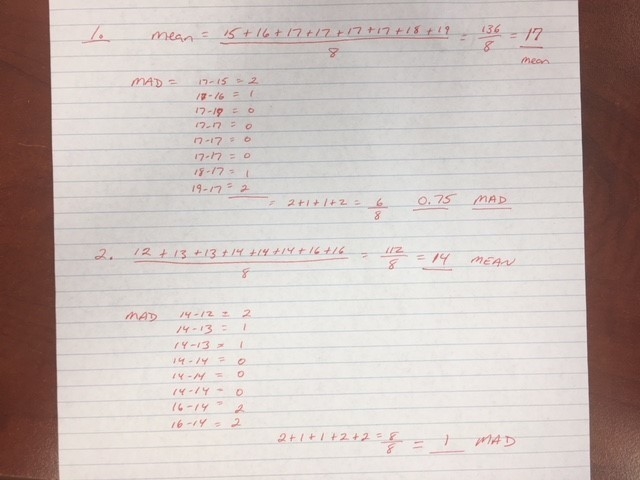 1. Mean = 15 + 16 + 17 + 17 + 17 + 17 + 18 + 19 = 136 = 17
8 8 mean
MAD = 17-15 = 2
17-16 = 1
17-17 = 0
17-17 = 0
17-17 = 0
17-17 = 0
18-17 = 1
19-17 = 2
= 2+1+1+2 = 6 0.75 MAD
8
2. 12 + 13 + 13 + 14 + 14 + 14 + 16 + 16 = 112 = 14 MEAN
8 8
MAD 14-12 = 2
14-13 = 1
14-13 = 1
14-14 = 0
14-14 = 0
14-14 = 0
16-14 = 2
16-14 = 2
2+1+1+2+2 = 8 = 1 MAD
8